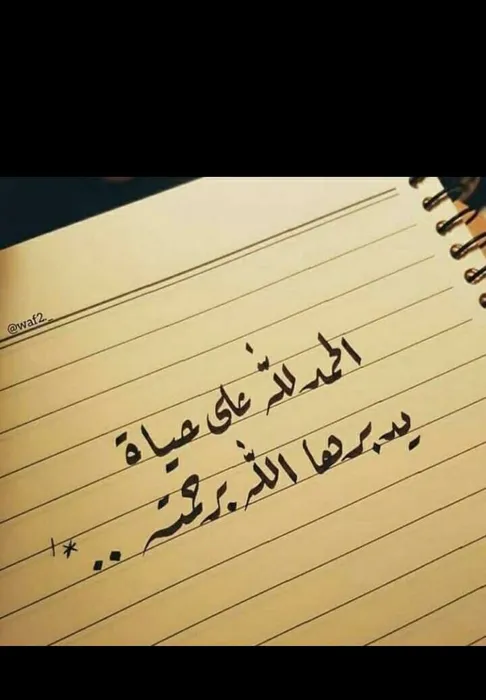 @waf2_
الحمد لله على حياة
يدبرها الله برحمته .. *